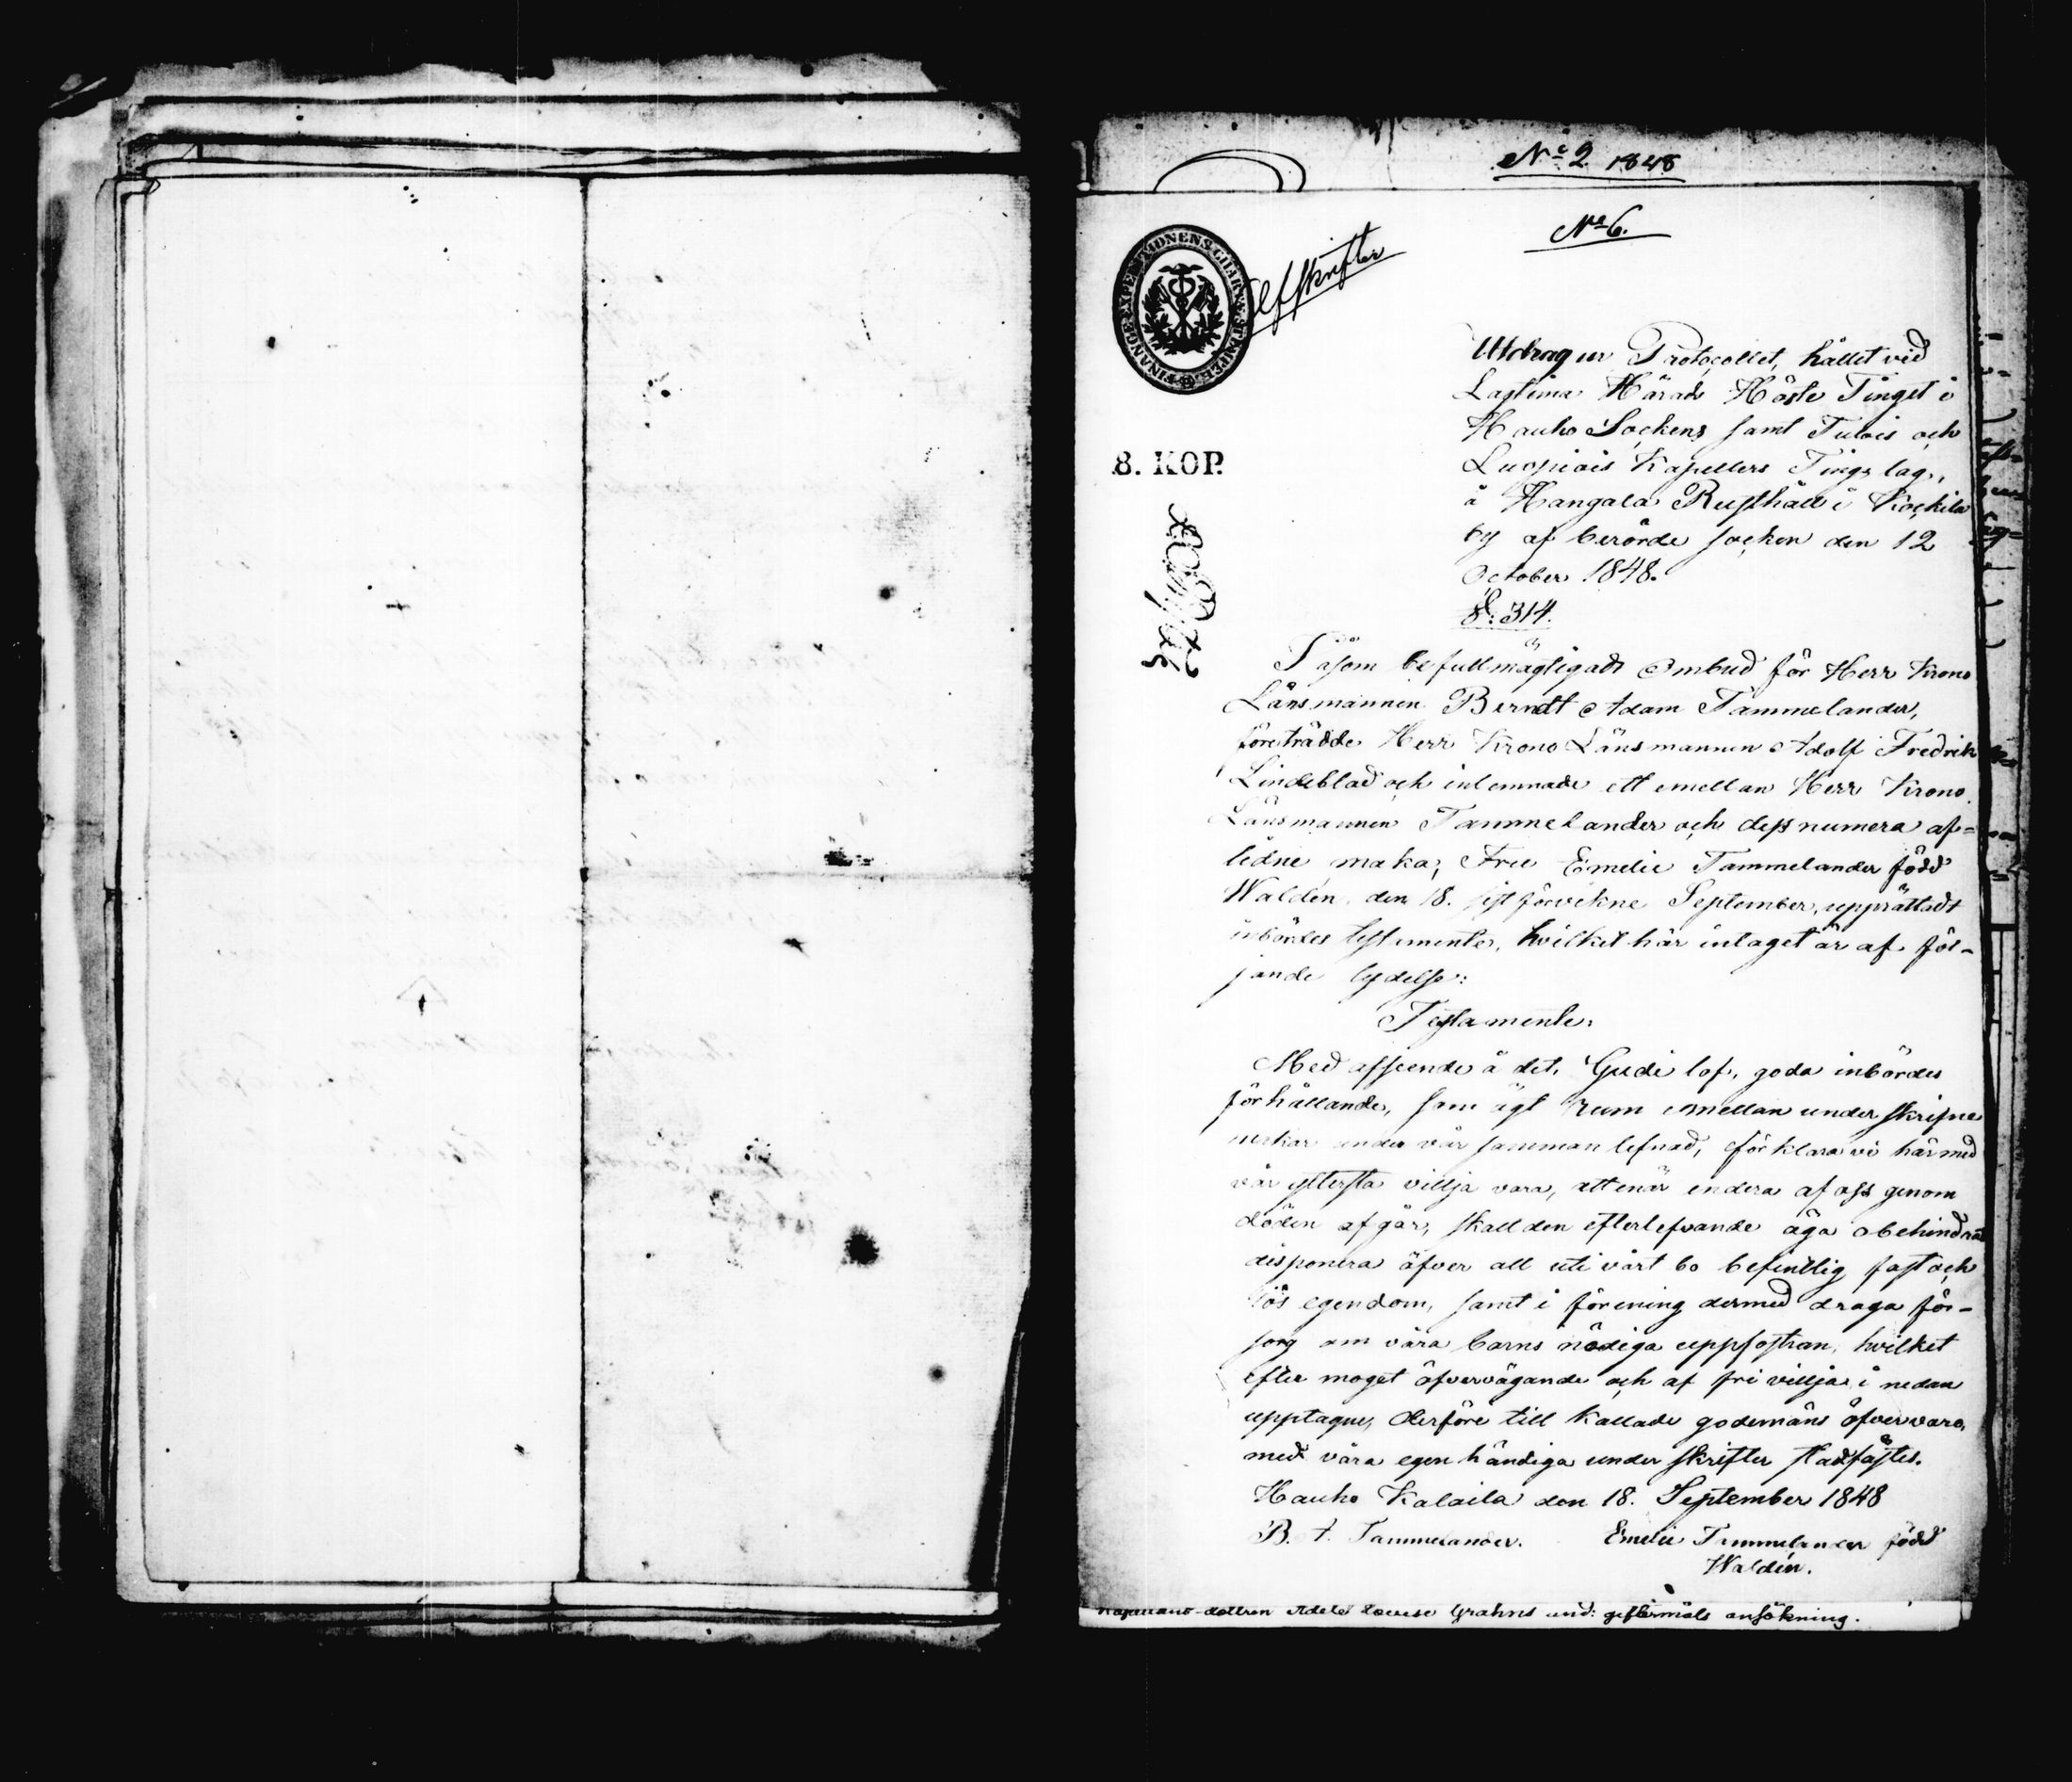 No 2 1848
No 6.
Afskrifter
FINANCE EXPEDITIONENS CHARTÆ STÄMPEL
8. KOP.
Utdrag ur Protocollet, hållet vid
Lagtima Härads Höste Tinget i
Hauho Sockens samt Tulois och
Luopiois Kapellers Tings lag,
å Hangala Rusthåll i Kockila
by af berörde socken den 12
October 1848.
§: 314.
Såsom befullmägtigadt Ombud för Herr Krono
Länsmannen Berndt Adam Tammelander,
företrädde Herr Krono Länsmannen Adolf Fredrik
Lindeblad och inlemnade ett emellan Herr Krono
Länsmannen Tammelander och dess numera af=
lidne maka, Fru Emelie Tammelander född
Waldén, den 18. sistförvikne September, upprättadt
inbördes testamente, hvilket här intaget är af föl-
jande lydelse:
Testamente:
Med afseende å det, Gudi lof, goda inbördes
förhållande, som ägt rum emellan underskrifne
makar under vår samman lefnad, förklara vi härmed
vår yttersta villja vara, att enär endera af oss genom
döden afgår, skall den efterlefvande äga obehindradt
disponera öfver all uti vårt bo befintlig fast och
lös egendom, samt i förening dermed draga för-
sorg om våra barns nödiga uppfostran, hvilket
efter moget öfvervägande och af fri villja i nedan
upptagne, derföre till kallade godemäns öfvervaro,
med våra egenhändiga underskrifter stadfästes.
Hauho Kalaila den 18. September 1848
B. A. Tammelander. Emelie Tammelander född
Waldén.
dottren Adele Lovise Grahns und: giftermåls ansökning.